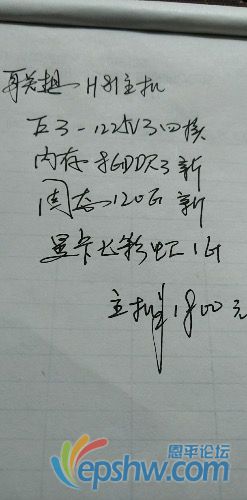 H81主机
E3-1225V3四核
内存8GDDR3新
固态120G新
显卡七彩虹1G
主机单1800元
恩平论坛
epshw.com